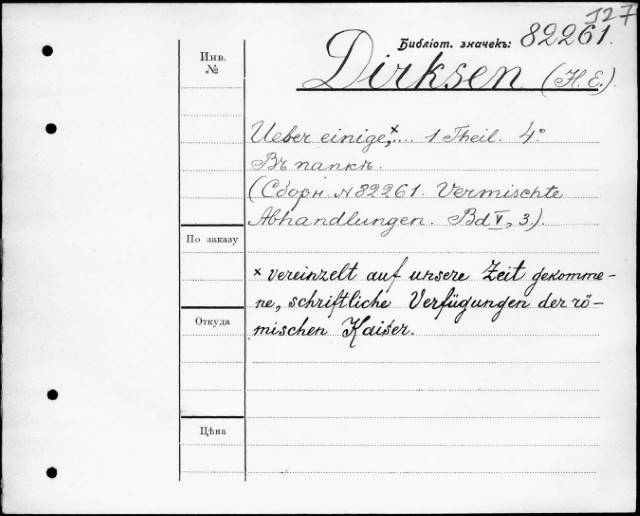 J27
Библіот. значекъ: 82261.
Инв.
№
Dirksen (H. E.).
Ueber einige,ˣ.... 1 Theil. 4°
Въ папкѣ.
(Сборн. №82261. Vermischte
Abhandlungen. Bd V, 3.).
По заказу
× vereinzelt auf unsere Zeit gekomme-
ne, schriftliche Verfügungen der rö-
Откуда
mischen Kaiser.
Цѣна